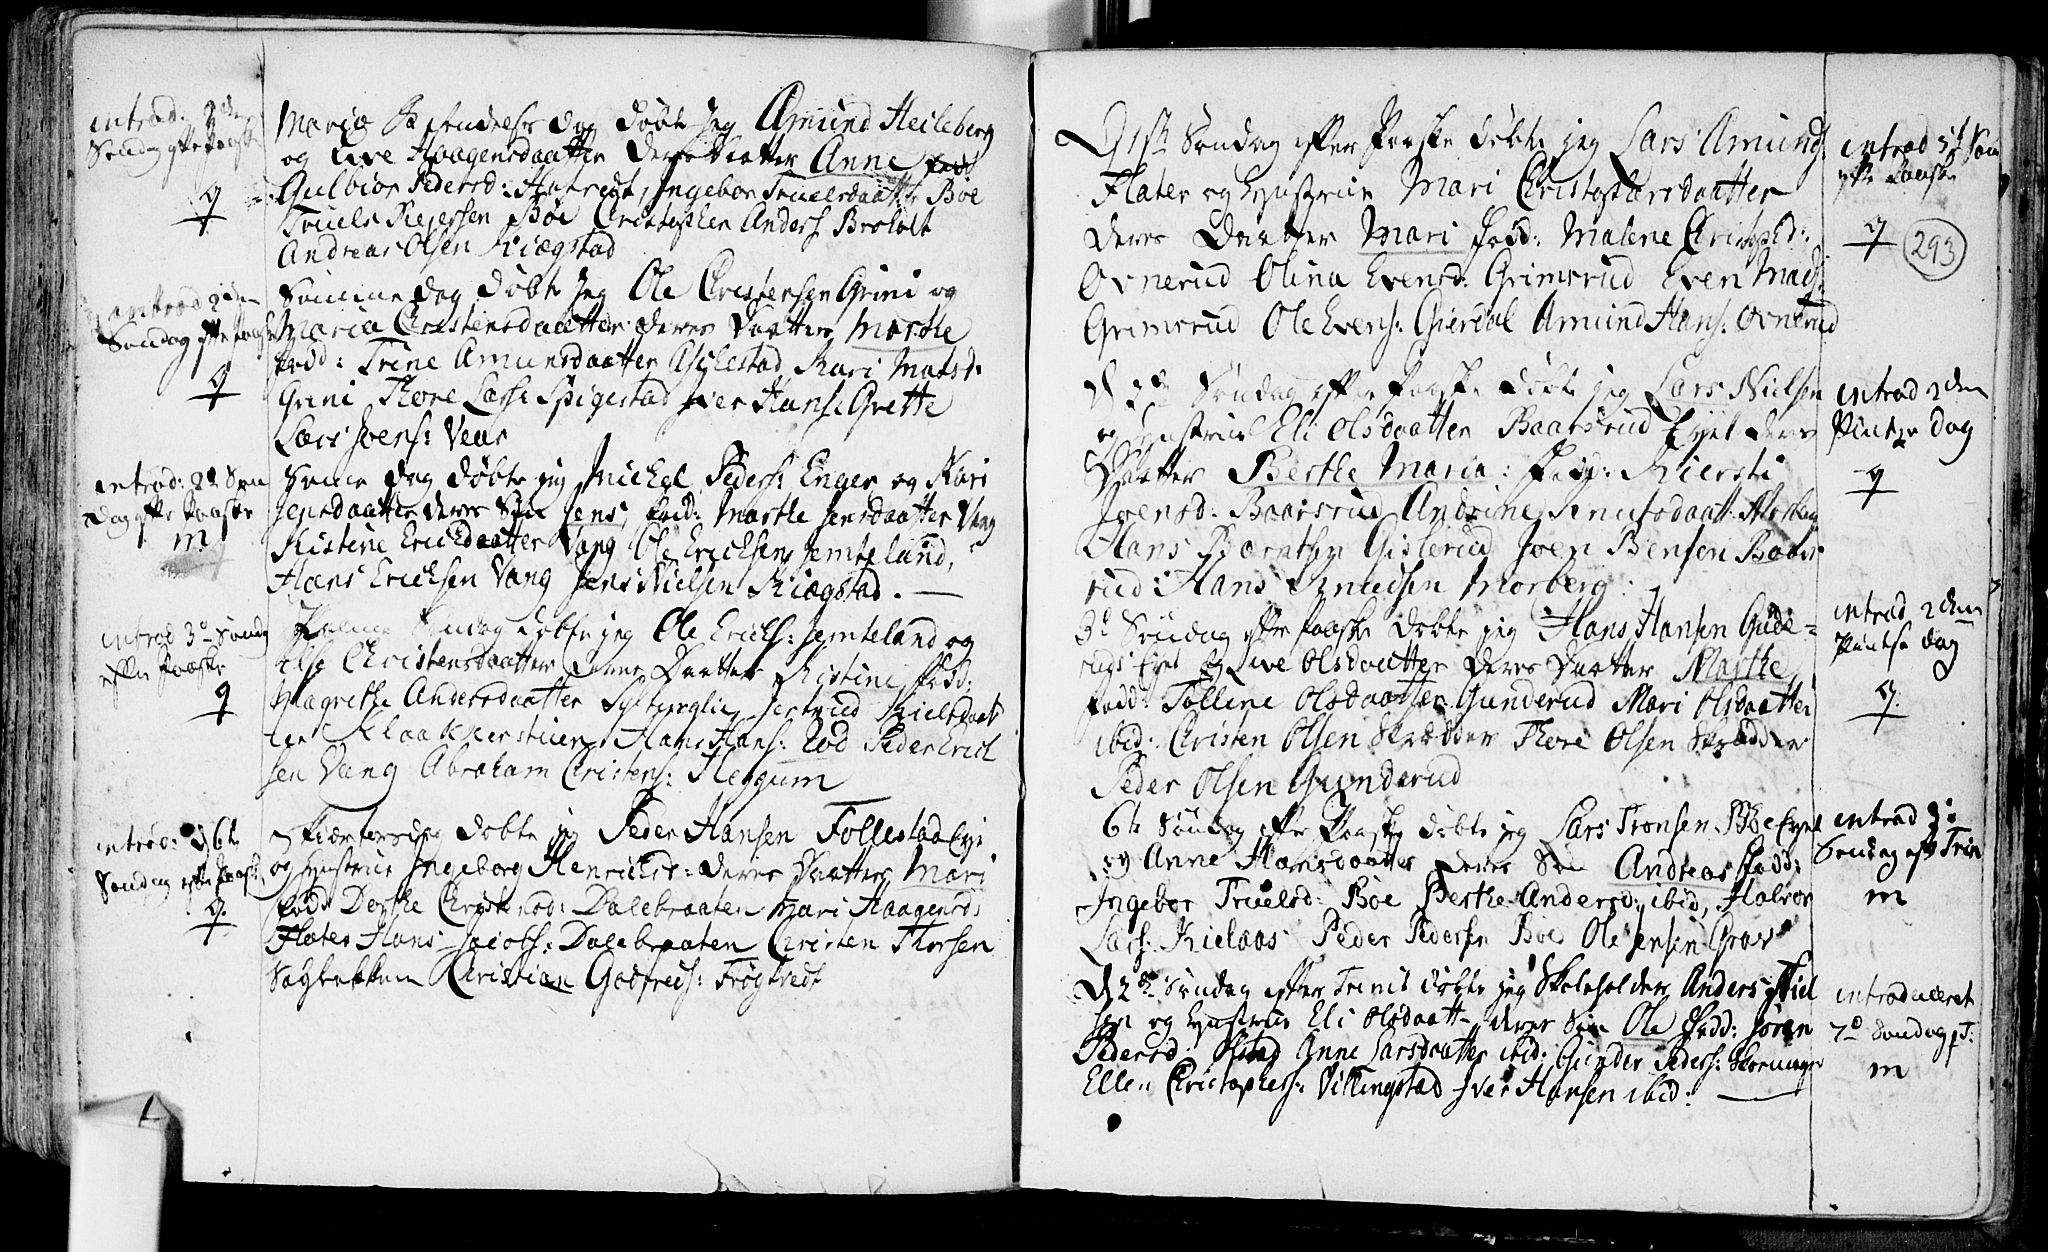 introd: 2den
Sondag efter Paaske
q
Mariæ Besøgelses dag døbte jeg Amund Heileberg
og Live Haagensdaatter deres Daatter Anne fad:
Gulbior Pedersd: Hafredt, Ingebor Truelsdaatter Boe
Truels Pedersen Bøe Christopher Anders: Brotolt
Andreas Olsen Kiægstad
introd 2den
Sondag efter paaske
q
Samme dag døbte jeg Ole Christensen Grini og
Maria Christensdaatter deres Daatter Marthe
fadd: Trine Amunsdaatter Askestad Kari Matsd:
Grini Thore Lars: Spigestad Iver Hans: Grette
Lars Svens: Vear
introd: 2de Søn
dag efter Paaske
m
Samme dag døbte jeg Michel Peders: Enger og Kari
Jensdaatter deres Søn Jens fad: Marthe Jensdaatter Vang
Kistine Ericksdaatter Vang Ole Ericksen Jemteland,
Hans Ericksen Vang Jens Nielsen Kiægstad.
introd 3de Søndag
efter Paaske
q
Palme Søndag døbte jeg Ole Ericks: Jemteland og
Else Christensdaatter deres Daatter Kistine fadd:
Magrethe Andersdaatter Gertrud Nielsdaat
ter Klaakkerstuen Hans Hans: Rød Peder Erick
sen Vang Abraham Christens: Heggum
introd: d 6te
Søndag efter Paaske
q
Skiærtorsdag døbte jeg Peder Hansen Follestad Eyet
og Hynstrue Ingeborg Henrichsd: deres Daatter Mari
fad: Dorthe Christensd: Dalebraaten Mari Haagensd:
Flater Hans Jacobs: Dalebraaten Christen Thorsen
Sagbakken Christian Godfreds: Frøgtvedt
293
D 1ste Søndag efter Paaske døbte jeg Lars Amunds:
Flater og Hynstrue Mari Christophersdaatter
deres Daatter Mari fadd: Malene Christophd:
Ovnerud Olina Evensd: Grimsrud Even Mads:
Grimsrud Ole Evens: Gierdal Amund Hans: Ovnerud
introd 5te Søn
efter Paaske
q
D 2den Søndag efter Paaske døbte jeg Lars Nielsen
og Hynstrue Eli Olsdaatter Baarsrud Eyet deres
Daatter Berthe Maria: fadd: Kiersti
Joensd: Baarsrud Andrine Knutsdaatt: Morberg
Hans Berntsen Gislerud Joen Bensen Baars
rud: Hans Knudsen Morberg:
introd 2den
Pintze dag
q
3de Søndag efter Paaske døbte jeg Hans Hansen Gude-
ruds Eyet og Live Olsdaatter deres Daatter Marthe
fadd: Tollene Olsdaatter Gunderud Mari Olsdaatter
ibid: Christen Olsen Skrædder Thore Olsen Skrædder
Peder Olsen Gunderud
introd 2den
Pintse dag
q
6te Søndag efter Paaske døbte jeg Lars Tronsen Bøe Eyet
og Anne Hansdaatter deres Søn Andreas fadd:
Ingebor Truelsd: Bøe Berthe Andersd: ibid, Halvor
Lars: Kielaas Peder Pedersen Bøe Ole Jensen Grav
introd 3:
Søndag efter Trin
m
D 2den Søndag efter Trinit døbte jeg Skoleholder Anders Niel
sen og Hynstrue Eli Olsdaatt- deres Søn Ole fadd: Søren
Pedersd: Olstad Anne Larsdaatter ibid: Gunder Peders:
Ellen Christophers: Villingstad Iver Hansen ibid:
introduceret
7de Søndag p T:
m